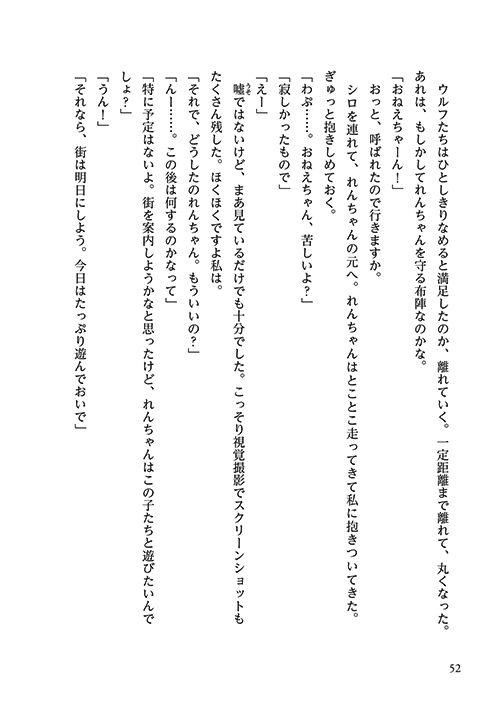 ウルフたちはひとしきりなめると満足したのか、離れていく。一定距離まで離れて、丸くなった。
あれは、もしかしてれんちゃんを守る布陣なのかな。
「おねえちゃーん！」
　おっと、呼ばれたので行きますか。
　シロを連れて、れんちゃんの元へ。れんちゃんはとことこ走ってきて私に抱きついてきた。
ぎゅっと抱きしめておく。
「わぷ……。おねえちゃん、苦しいよ？」
「寂しかったもので」
「えー」
　嘘うそではないけど、まあ見ているだけでも十分でした。こっそり視覚撮影でスクリーンショットも
たくさん残した。ほくほくですよ私は。
「それで、どうしたのれんちゃん。もういいの？」
「んー……。この後は何するのかなって」
「特に予定はないよ。街を案内しようかなと思ったけど、れんちゃんはこの子たちと遊びたいんで
しょ？」
「うん！」
「それなら、街は明日にしよう。今日はたっぷり遊んでおいで」
52